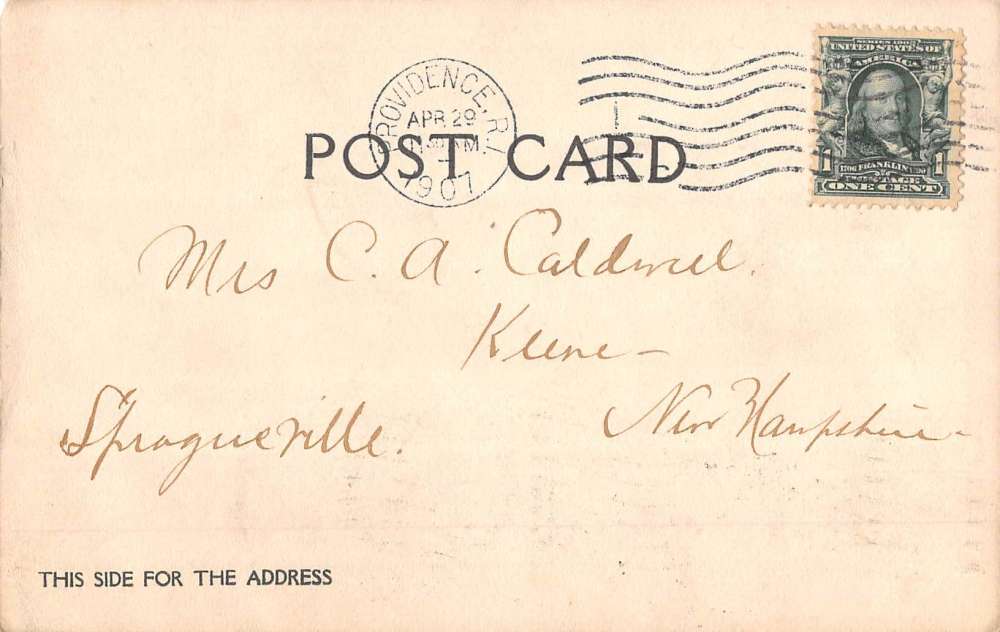 SERIES 1902
UNITED STATES OF
AMERICA
1706 FRANKLIN 1790
1 POSTAGE 1
ONE CENT
PROVIDENCE, R.I.
APR 29
1907
1
POST CARD
Mrs C. A. Caldwell.
Keene -
New Hampshire -
Spragueville.
THIS SIDE FOR THE ADDRESS